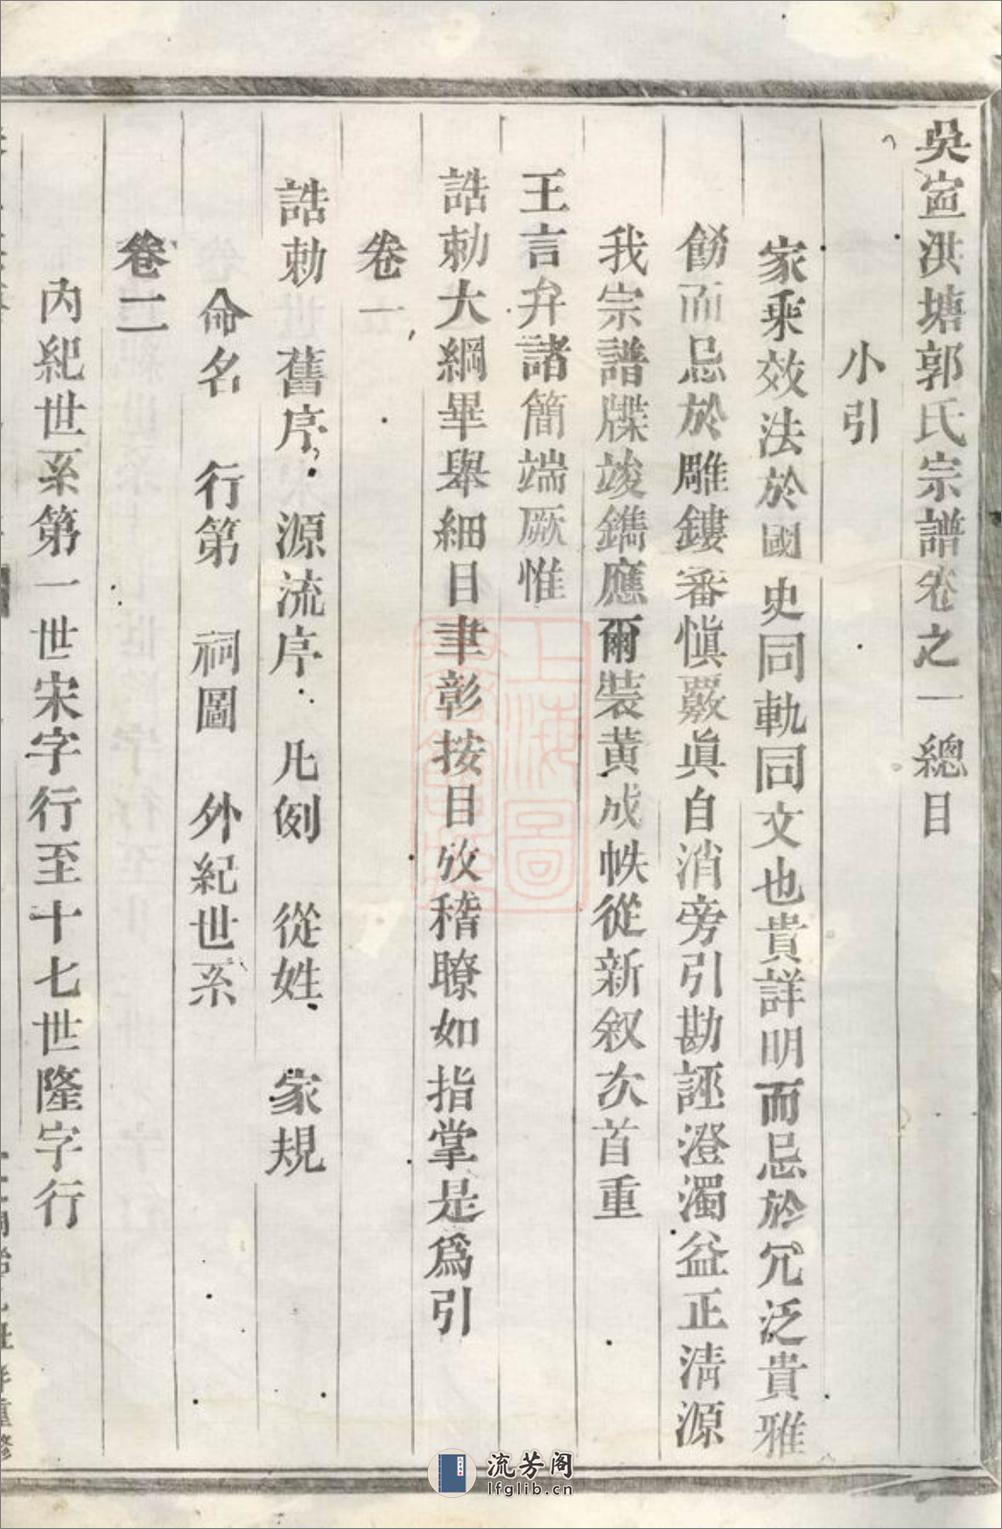 吳宣洪塘郭氏宗譜卷之一總目
小引
家乘效法於國史同軌同文也貴詳明而忌於冗泛貴雅
飭而忌於雕鏤審愼覈眞自消旁引勘誣澄濁益正淸源
我宗譜牒竣鐫應爾裝黃成帙從新叙次首重
王言弁諸簡端厥惟
誥勅大綱畢舉細目聿彰按目攷稽瞭如指掌是爲引
卷一
誥勅 舊序 源流序 凡例 從姓 家規
命名 行第 祠圖 外紀世系
卷二
內紀世系第一世宋字行至十七世隆字行
上海圖
流芳阁
lfglib.cn